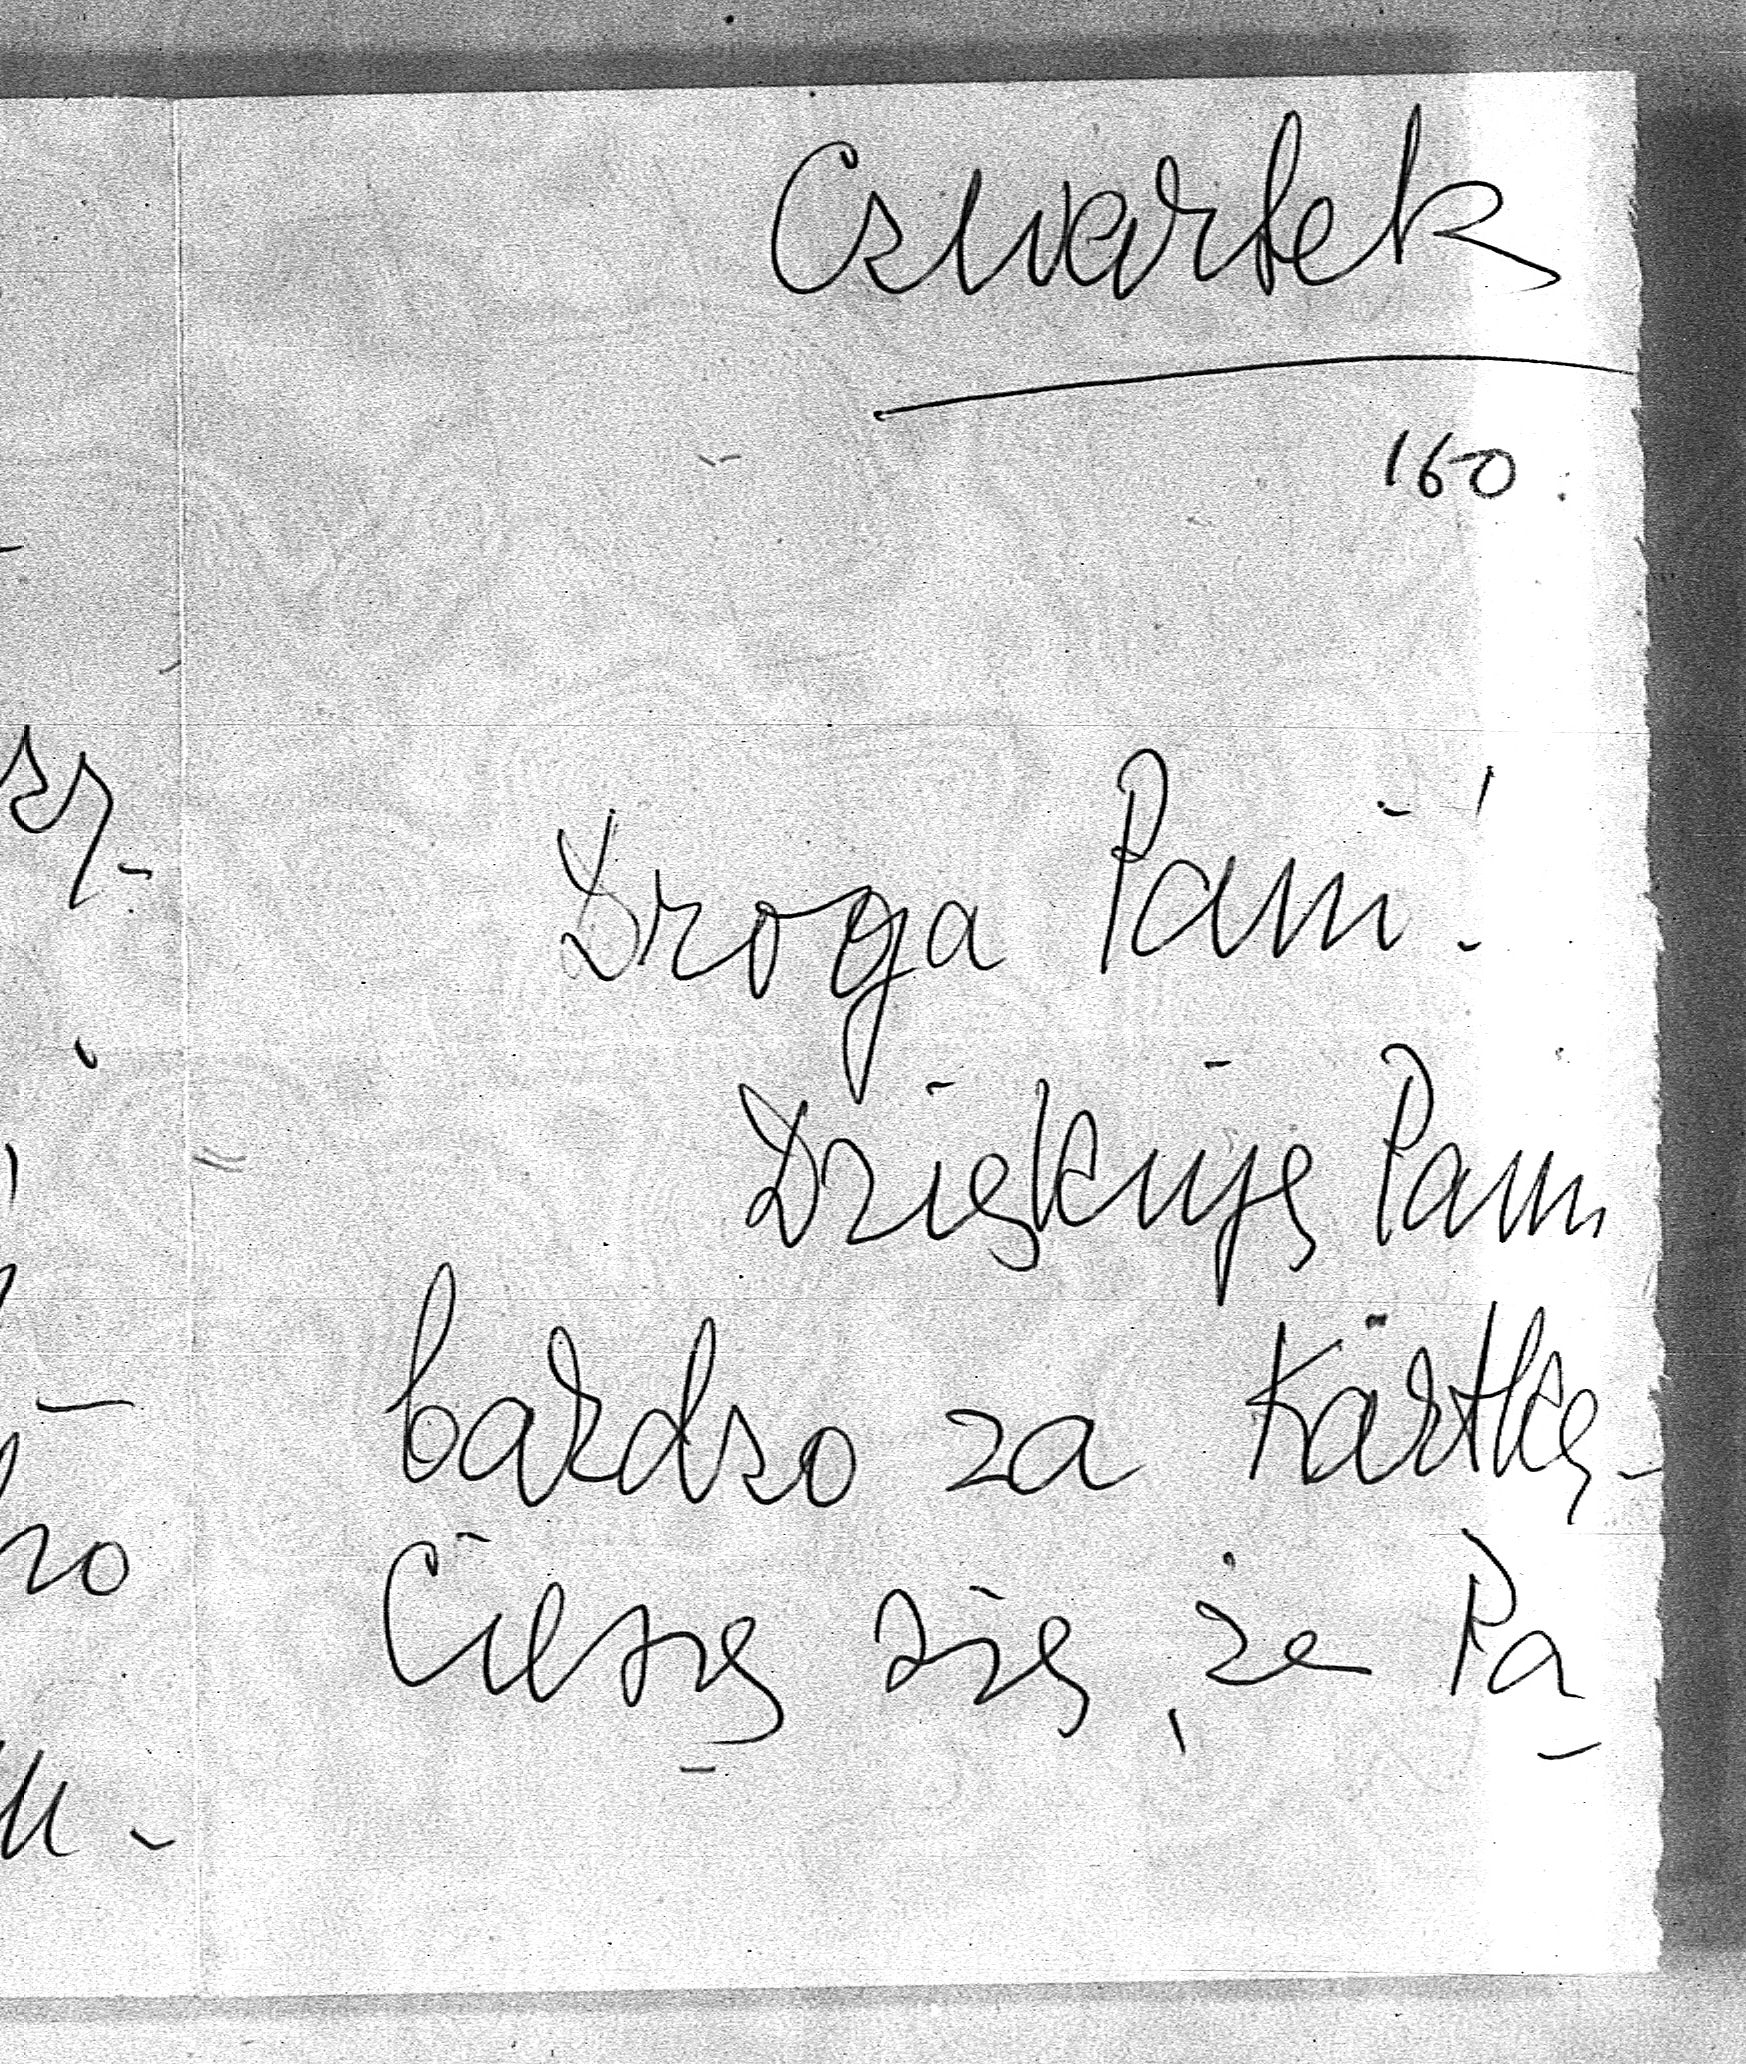 Czwartek
160
Droga Pani!
Dziękuję Pani
bardzo za kartkę-
Cieszę się, że Pa